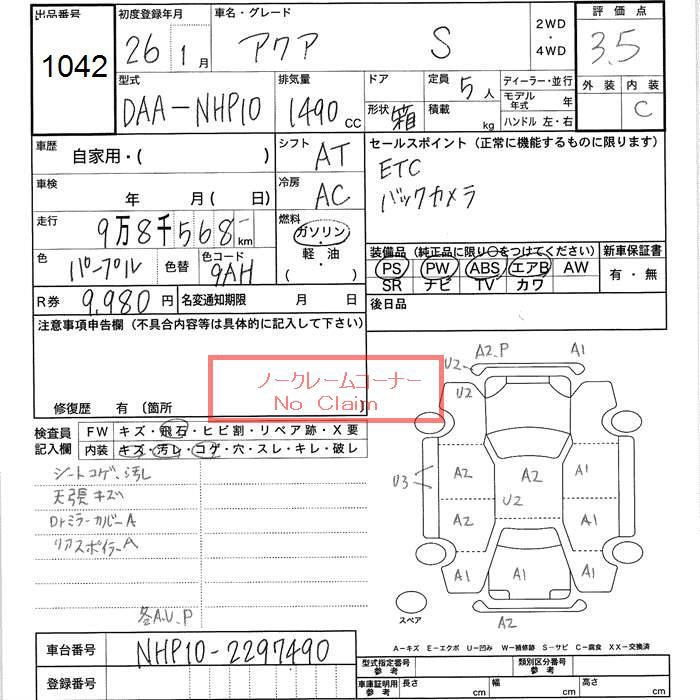 出品番号 1042
初度登録年月 26 1月
車名・グレード アクア S
2WD・4WD
評価点 3.5
型式 DAA-NHP10
排気量 1490 CC
ドア
形状 箱
定員 5人
積載 kg
ディーラー・並行
モデル年式 年
ハンドル 左・右
外装 内装
C
車歴 自家用・( )
シフト AT
セールスポイント(正常に機能するものに限ります)
ETC
バックカメラ
車検 年 月(日)
冷房 AC
走行 9万8千568 km
燃料 ガソリン・軽・油 ( )
色 パープル 色替 色コード 9AH
装備品(純正品に限り○をつけてください) 新車保証書
PS PW ABS エアB AW 有・無
SR ナビ TV カワ
R券 9,980円 名変通知期限 月 日
後日品
注意事項申告欄(不具合内容等は具体的に記入して下さい)
ノークレームコーナー
No Claim
修復歴 有〔箇所
検査員記入欄
FW キズ・飛石・ヒビ割・リペア跡・X要
内装 キズ・汚レ・コゲ・穴・スレ・キレ・破レ
シートコゲ、汚レ
天張キズ
Drミラーカバー A
リアスポイラー A
各A.U.P
U2 A2.P A1
U2
U3 A2 A2 A1
U2
A2 A1
A1 A1 A1
スペア A2
A-キズ E-エクボ U-凹み W-補修跡 S-サビ C-腐食 XX-交換済
車台番号 NHP10-2297490
登録番号
型式指定番号 参考 類別区分番号 参考
車庫証明用 参考 長さ cm 幅 cm 高さ cm